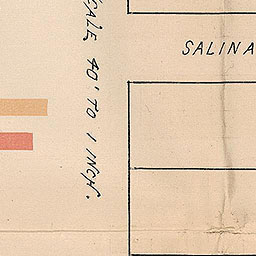 SCALE 40' TO 1 INCH.
SALINA